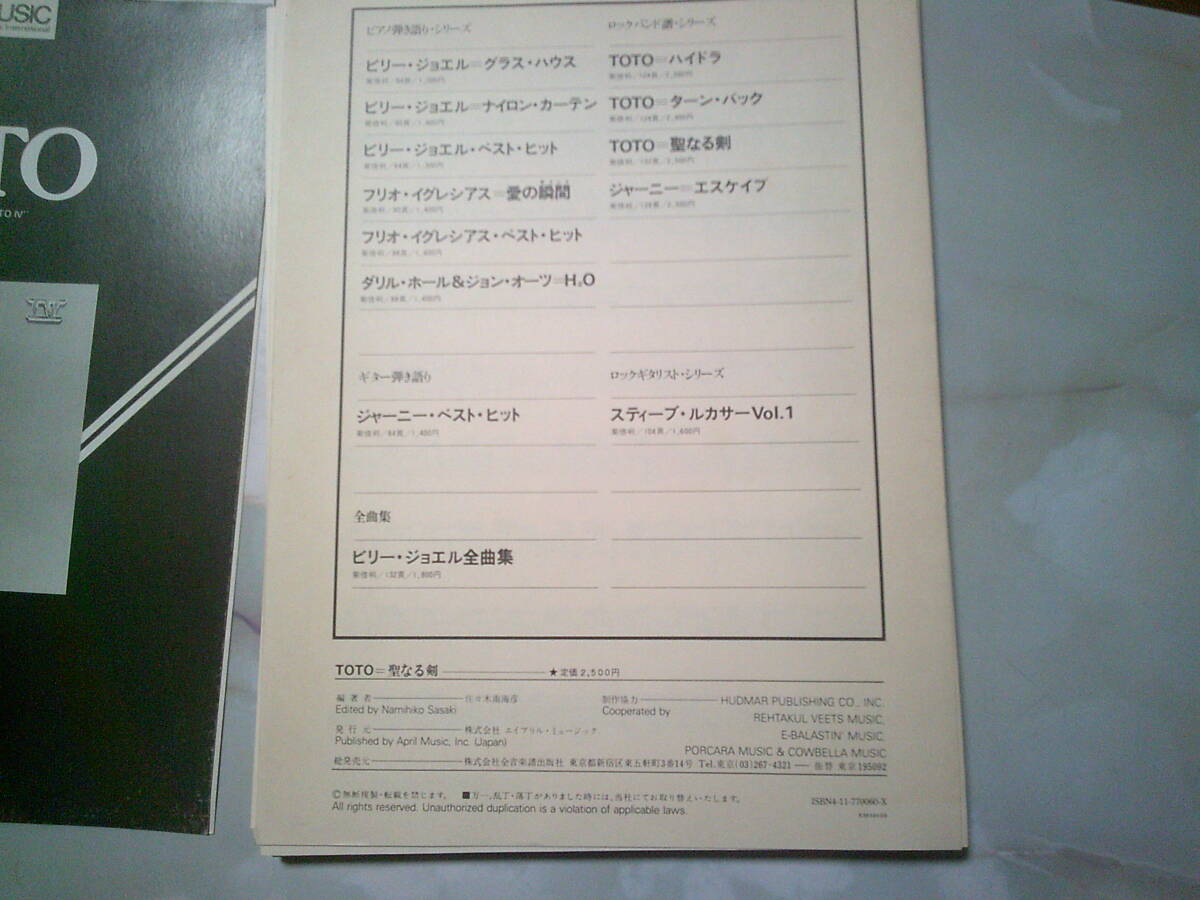 USIC
International
TO
TO IV"
ピアノ弾き語り・シリーズ
ビリー・ジョエル=グラス・ハウス
ビリー・ジョエル=ナイロン・カーテン
ビリー・ジョエル・ベスト・ヒット
フリオ・イグレシアス=愛の瞬間
フリオ・イグレシアス・ベスト・ヒット
ダリル・ホール&ジョン・オーツ=H₂O
ギター弾き語り
ジャーニー・ベスト・ヒット
菊倍判/84頁/1,400円
全曲集
ビリー・ジョエル全曲集
菊倍判/132頁/1,800円
ロックバンド譜・シリーズ
TOTO=ハイドラ
TOTO=ターン・バック
TOTO=聖なる剣
ジャーニー=エスケイプ
ロックギタリスト・シリーズ
スティーブ・ルカサーVol.1
菊倍判/104頁/1,600円
TOTO=聖なる剣 ★定価2,500円
編著者 佐々木南海彦
Edited by Namihiko Sasaki
発行元 株式会社 エイプリル・ミュージック
Published by April Music, Inc. (Japan)
制作協力 HUDMAR PUBLISHING CO., INC.
Cooperated by REHTAKUL VEETS MUSIC,
E-BALASTIN' MUSIC,
PORCARA MUSIC & COWBELLA MUSIC
総発売元 株式会社全音楽譜出版社 東京都新宿区東五軒町3番14号 Tel.東京(03)267-4321 振替 東京195092
©無断複製・転載を禁じます。 ■万一、乱丁・落丁がありました時には、当社にてお取り替えいたします。
All rights reserved. Unauthorized duplication is a violation of applicable laws.
ISBN4-11-770060-X